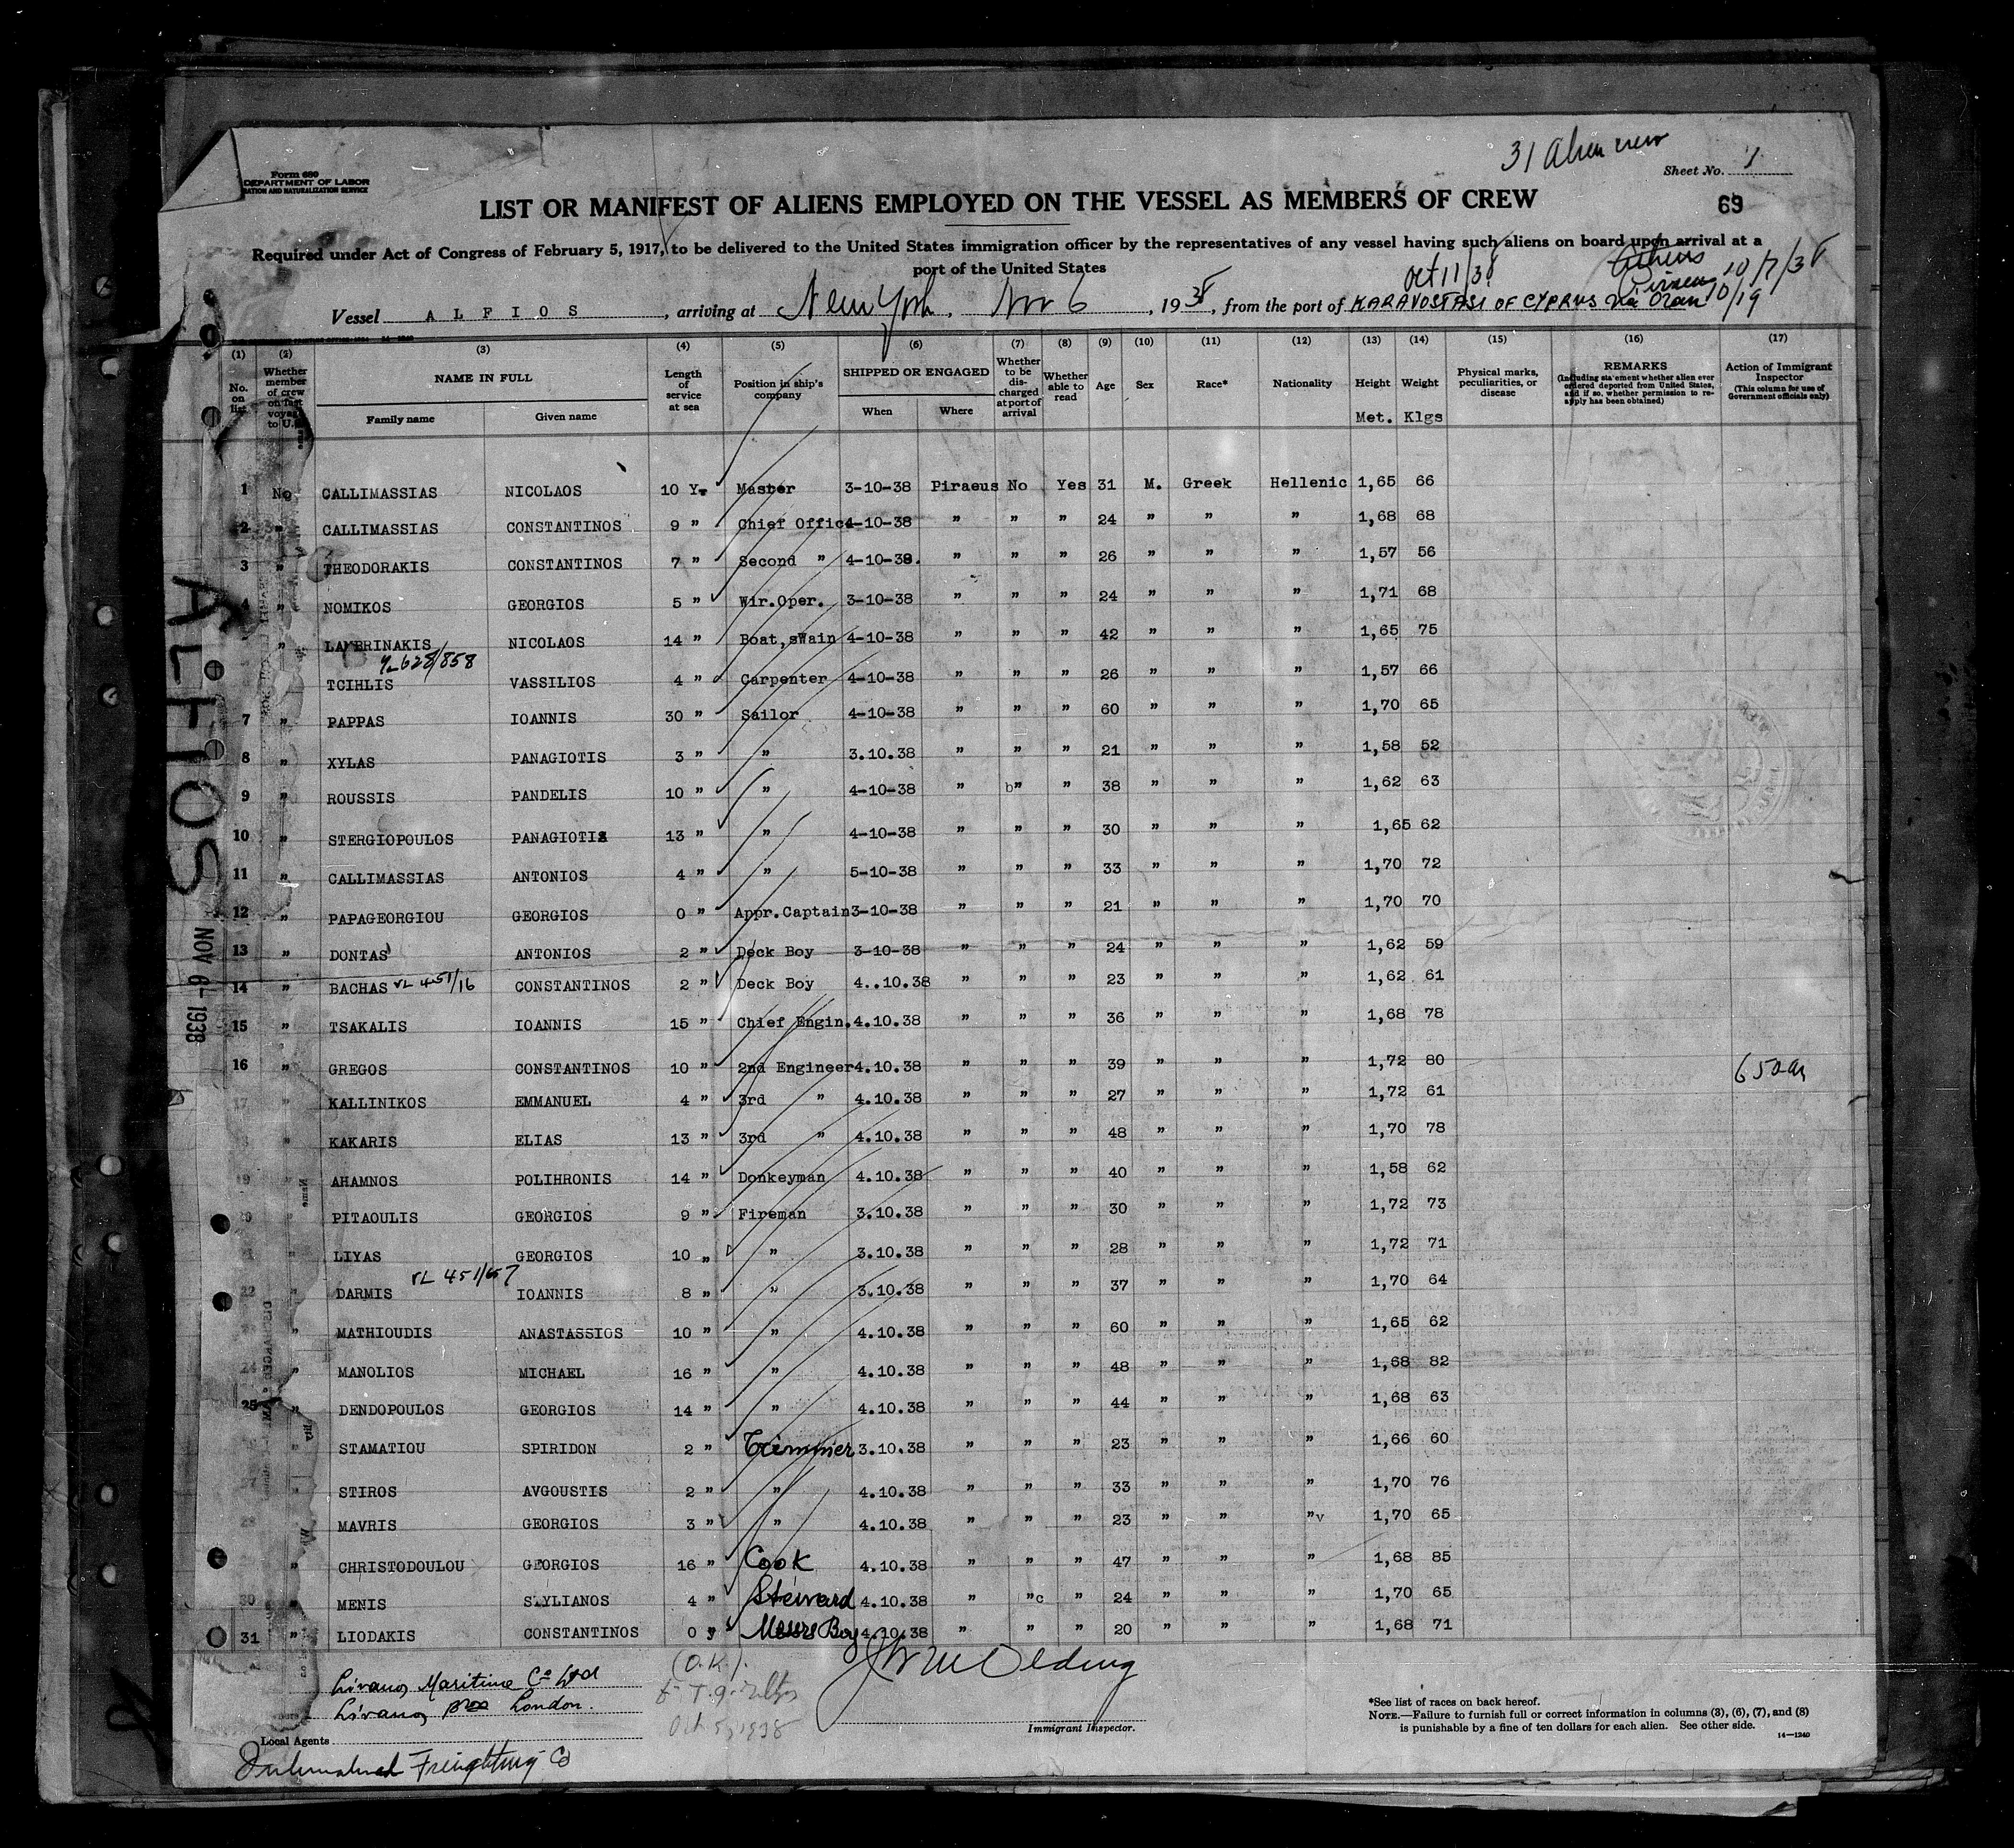 31 Alien crew
Form 680
DEPARTMENT OF LABOR
RATION AND NATURALIZATION SERVICE
Sheet No. 1
LIST OR MANIFEST OF ALIENS EMPLOYED ON THE VESSEL AS MEMBERS OF CREW
69
Required under Act of Congress of February 5, 1917, to be delivered to the United States immigration officer by the representatives of any vessel having such aliens on board upon arrival at a
port of the United States
Oct 11/38 Athens Piraeus 10/7/38
Vessel ALFIOS, arriving at New York, Nov 6, 1938, from the port of KARAVOSTASI OF CYPRUS via Oran 10/19
(1) (2) (3) (4) (5) (6) (7) (8) (9) (10) (11) (12) (13) (14) (15) (16) (17)
No. on list
Whether member of crew on last voyage to U.S.
NAME IN FULL
Family name Given name
Length of service at sea
Position in ship's company
SHIPPED OR ENGAGED
When Where
Whether to be discharged at port of arrival
Whether able to read
Age Sex Race* Nationality
Height Met.
Weight Klgs
Physical marks, peculiarities, or disease
REMARKS
(Including statement whether alien ever ordered deported from United States, and if so, whether permission to reapply has been obtained)
Action of Immigrant Inspector
(This column for use of Government officials only)
1 No CALLIMASSIAS NICOLAOS 10 Y. Master 3-10-38 Piraeus No Yes 31 M. Greek Hellenic 1,65 66
2 " CALLIMASSIAS CONSTANTINOS 9 " Chief Offic 4-10-38 " " " 24 " " " 1,68 68
3 " THEODORAKIS CONSTANTINOS 7 " Second " 4-10-38. " " " 26 " " " 1,57 56
4 " NOMIKOS GEORGIOS 5 " Wir.Oper. 3-10-38 " " " 24 " " " 1,71 68
" LAMBRINAKIS NICOLAOS 14 " Boat,sWain 4-10-38 " " " 42 " " " 1,65 75
628/858
TCIHLIS VASSILIOS 4 " Carpenter 4-10-38 " " " 26 " " " 1,57 66
7 " PAPPAS IOANNIS 30 " Sailor 4-10-38 " " " 60 " " " 1,70 65
8 " XYLAS PANAGIOTIS 3 " " 3.10.38 " " " 21 " " " 1,58 52
9 " ROUSSIS PANDELIS 10 " " 4-10-38 " b" " 38 " " " 1,62 63
10 " STERGIOPOULOS PANAGIOTIS 13 " " 4-10-38 " " " 30 " " " 1,65 62
11 " CALLIMASSIAS ANTONIOS 4 " " 5-10-38 " " " 33 " " " 1,70 72
12 " PAPAGEORGIOU GEORGIOS 0 " Appr.Captain 3-10-38 " " " 21 " " " 1,70 70
13 " DONTAS ANTONIOS 2 " Deck Boy 3-10-38 " " " 24 " " " 1,62 59
14 " BACHAS VL 451/16 CONSTANTINOS 2 " Deck Boy 4..10.38 " " " 23 " " " 1,62 61
15 " TSAKALIS IOANNIS 15 " Chief Engin. 4.10.38 " " " 36 " " " 1,68 78
16 " GREGOS CONSTANTINOS 10 " 2nd Engineer 4.10.38 " " " 39 " " " 1,72 80 650am
17 " KALLINIKOS EMMANUEL 4 " 3rd " 4.10.38 " " " 27 " " " 1,72 61
" KAKARIS ELIAS 13 " 3rd " 4.10.38 " " " 48 " " " 1,70 78
19 " AHAMNOS POLIHRONIS 14 " Donkeyman 4.10.38 " " " 40 " " " 1,58 62
20 " PITAOULIS GEORGIOS 9 " Fireman 3.10.38 " " " 30 " " " 1,72 73
" LIYAS GEORGIOS 10 " " 3.10.38 " " " 28 " " " 1,72 71
VL 451/657
22 " DARMIS IOANNIS 8 " " 3.10.38 " " " 37 " " " 1,70 64
" MATHIOUDIS ANASTASSIOS 10 " " 4.10.38 " " " 60 " " " 1,65 62
24 " MANOLIOS MICHAEL 16 " " 4.10.38 " " " 48 " " " 1,68 82
25 " DENDOPOULOS GEORGIOS 14 " " 4.10.38 " " " 44 " " " 1,68 63
" STAMATIOU SPIRIDON 2 " Trimmer 3.10.38 " " " 23 " " " 1,66 60
27 " STIROS AVGOUSTIS 2 " " 4.10.38 " " " 33 " " " 1,70 76
" MAVRIS GEORGIOS 3 " " 4.10.38 " " " 23 " " "v 1,70 65
" CHRISTODOULOU GEORGIOS 16 " Cook 4.10.38 " " " 47 " " " 1,68 85
30 " MENIS STYLIANOS 4 " Steward 4.10.38 " "c " 24 " " " 1,70 65
31 " LIODAKIS CONSTANTINOS 0 " Mess Boy 4.10.38 " " " 20 " " " 1,68 71
ALFIOS
NOV 6- 1938
Livanos Maritime Co Ltd
Livanos Bros London.
Local Agents
International Freighting Co
(O.K.)
Oct 5, 1938
Immigrant Inspector.
*See list of races on back hereof.
NOTE.—Failure to furnish full or correct information in columns (3), (6), (7), and (8)
is punishable by a fine of ten dollars for each alien. See other side.
14—1240